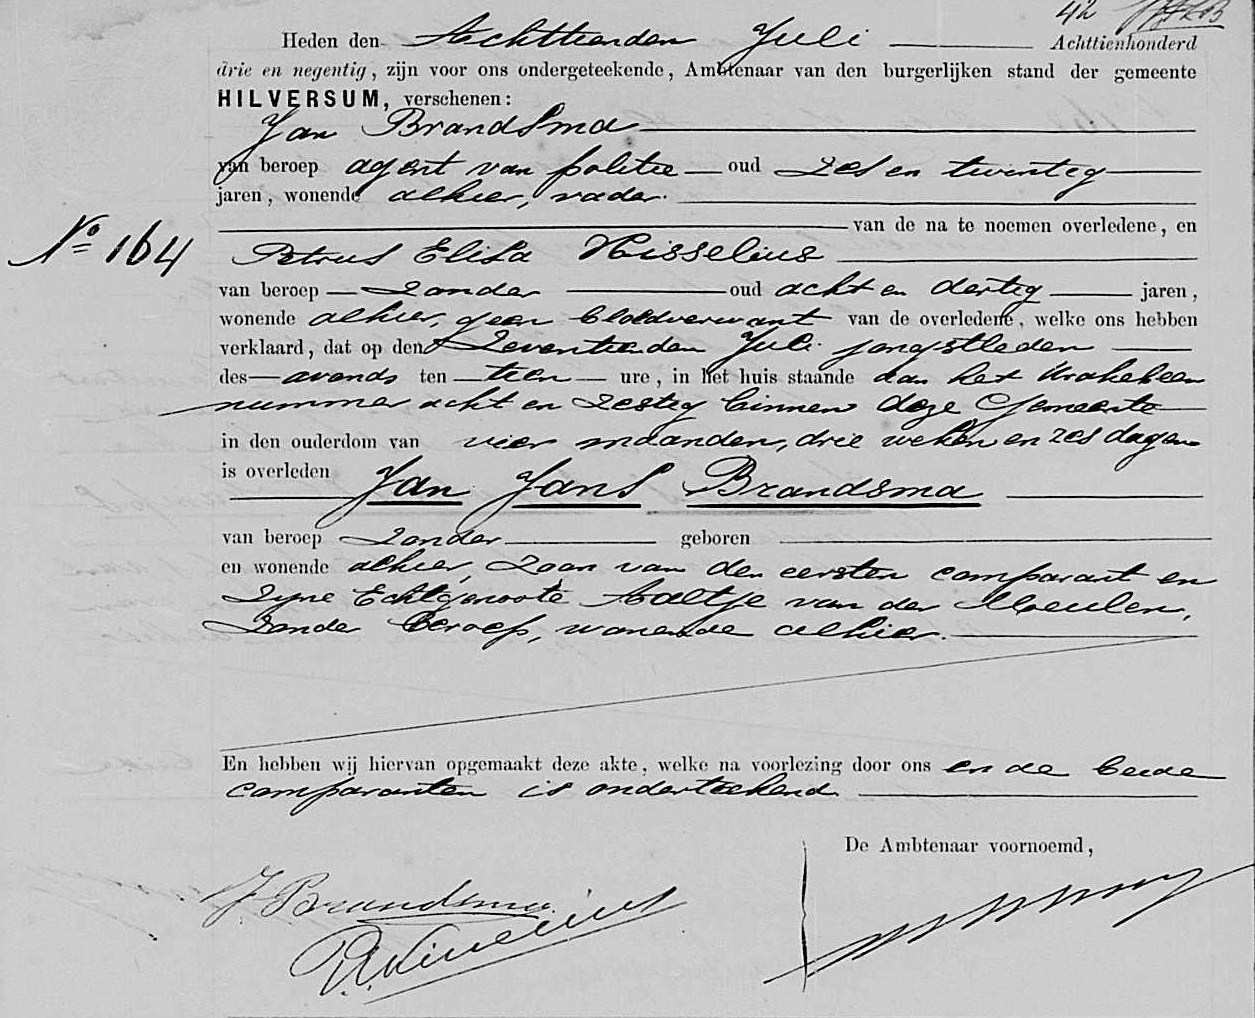 42
Heden den Achttienden Juli Achttienhonderd
drie en negentig, zijn voor ons ondergeteekende, Ambtenaar van den burgerlijken stand der gemeente
HILVERSUM, verschenen:
Jan Brandsma
van beroep agent van politie oud zes en twintig
jaren, wonende alhier, vader
van de na te noemen overledene, en
No 164
Petrus Elisa Hisselius
van beroep zonder oud acht en dertig jaren,
wonende alhier, geen bloedverwant van de overledene, welke ons hebben
verklaard, dat op den Zeventienden Juli jongstleden
des avonds ten tien ure, in het huis staande aan het
nummer acht en zestig binnen deze Gemeente
in den ouderdom van vier maanden, drie weken en zes dagen
is overleden
Jan Jans Brandsma
van beroep zonder geboren
en wonende alhier, zoon van den eersten comparant en
zijne Echtgenoote Aaltje van der Meulen,
zonder beroep, wonende alhier.
En hebben wij hiervan opgemaakt deze akte, welke na voorlezing door ons en de beide
comparanten is onderteekend.
De Ambtenaar voornoemd,
J. Brandsma